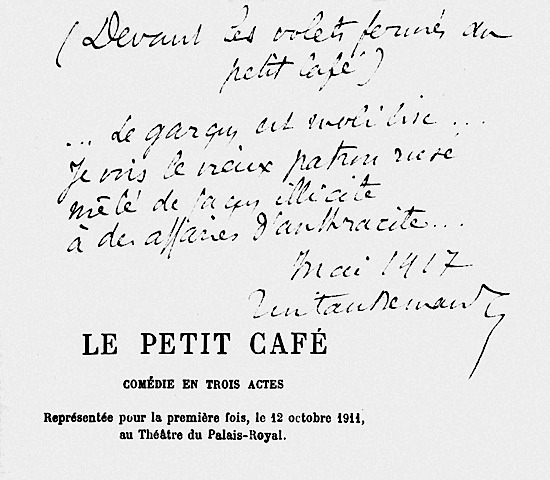 (Devant les volets fermés du
petit café)
... Le garçon est mobilisé ...
Je vois le vieux patron rusé
mêlé de façon illicite
à des affaires d'anthracite....
Mai 1917
Tristan Bernard
LE PETIT CAFÉ
COMÉDIE EN TROIS ACTES
Représentée pour la première fois, le 12 octobre 1911,
au Théâtre du Palais-Royal.